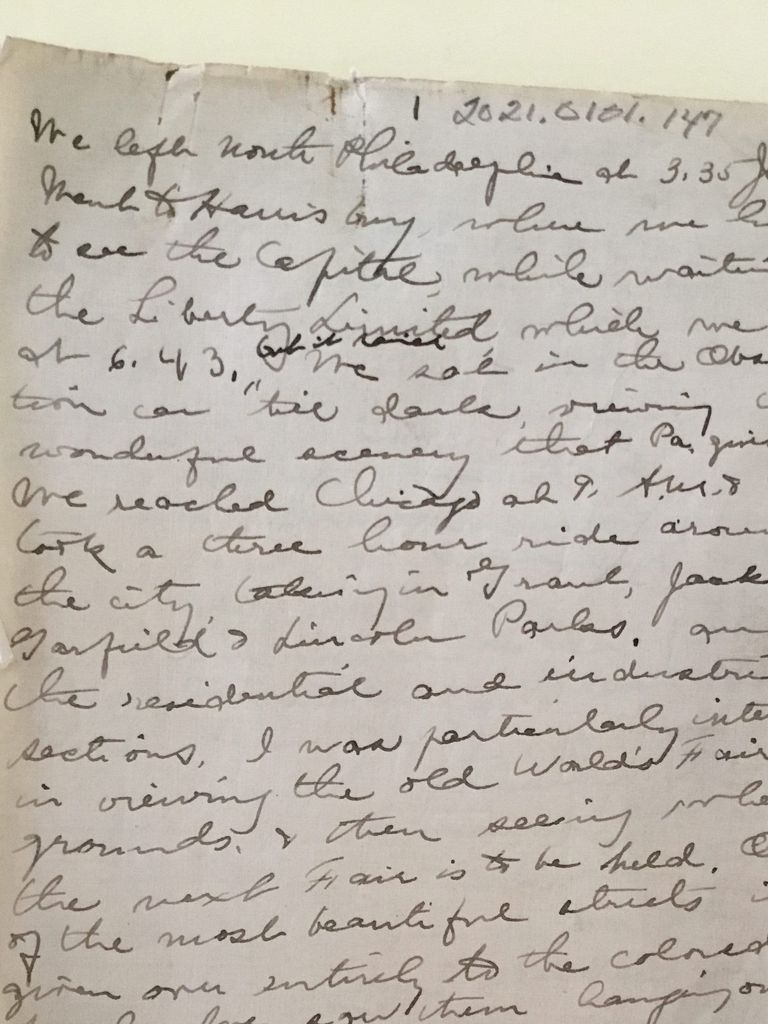 1 2021.0101.147
We left North Philadelphia at 3.35
Went to Harrisburg, where we
to see the Capital, while
the Liberty Limited which we
but it rained
at 6.43. We sat in the
tion car "till dark, viewing
wonderful scenery that Pa.
We reached Chicago at 9. A.M. &
took a three hour ride
the city, taking in Grant,
Garfield & Lincoln Parks.
the residential and
sections. I was particularly
in viewing the old World's Fair
grounds, & then seeing
the next Fair is to be held.
of the most beautiful streets
given over entirely to the colored
saw them